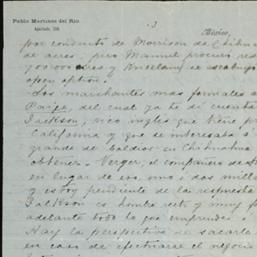 Pablo Martinez del Rio
3
México,
por conducto de Morrison de Chihua
de acres, pero Manuel procuró red
700.000 acres y
open option.
Los marchantes mas formales
del cual ya te dí cuenta
Jackson, rico inglés que tiene pro
California y que se interesaba á
grande de baldios en Chihuahua
obtener. Verger, el compañero de
en lugar de eso, uno ó dos mill
y estoy pendiente de la respuesta
Jackson es hombre recto y muy f
adelante todo lo que emprende.
Hay la perspectiva de sacarle
en caso de efectuarse el negocio